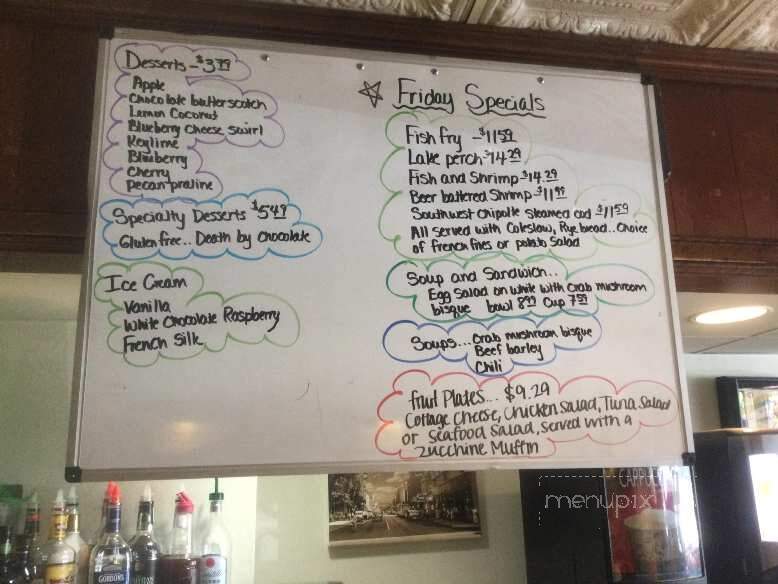 Desserts - $3.79
Apple
Chocolate butterscotch
Lemon Coconut
Blueberry Cheese swirl
Keylime
Blueberry
Cherry
Pecan praline
Specialty Desserts $5.49
Gluten free.. Death by Chocolate
Ice Cream
Vanilla
White Chocolate Raspberry
French Silk
Friday Specials
Fish fry - $11.59
Lake perch - $14.29
Fish and Shrimp - $14.29
Beer battered Shrimp - $11.99
Southwest Chipotle Steamed cod $11.59
All served with Coleslaw, Rye bread.. Choice
of french fries or potato Salad
Soup and Sandwich..
Egg Salad on white with Crab mushroom
bisque bowl 8.99 Cup 7.59
Soups... Crab mushroom bisque
Beef barley
Chili
Fruit Plates... $9.29
Cottage Cheese, Chicken Salad, Tuna Salad
or Seafood Salad, served with a
Zucchine Muffin
menupix
CAPPUC
GORDON'S